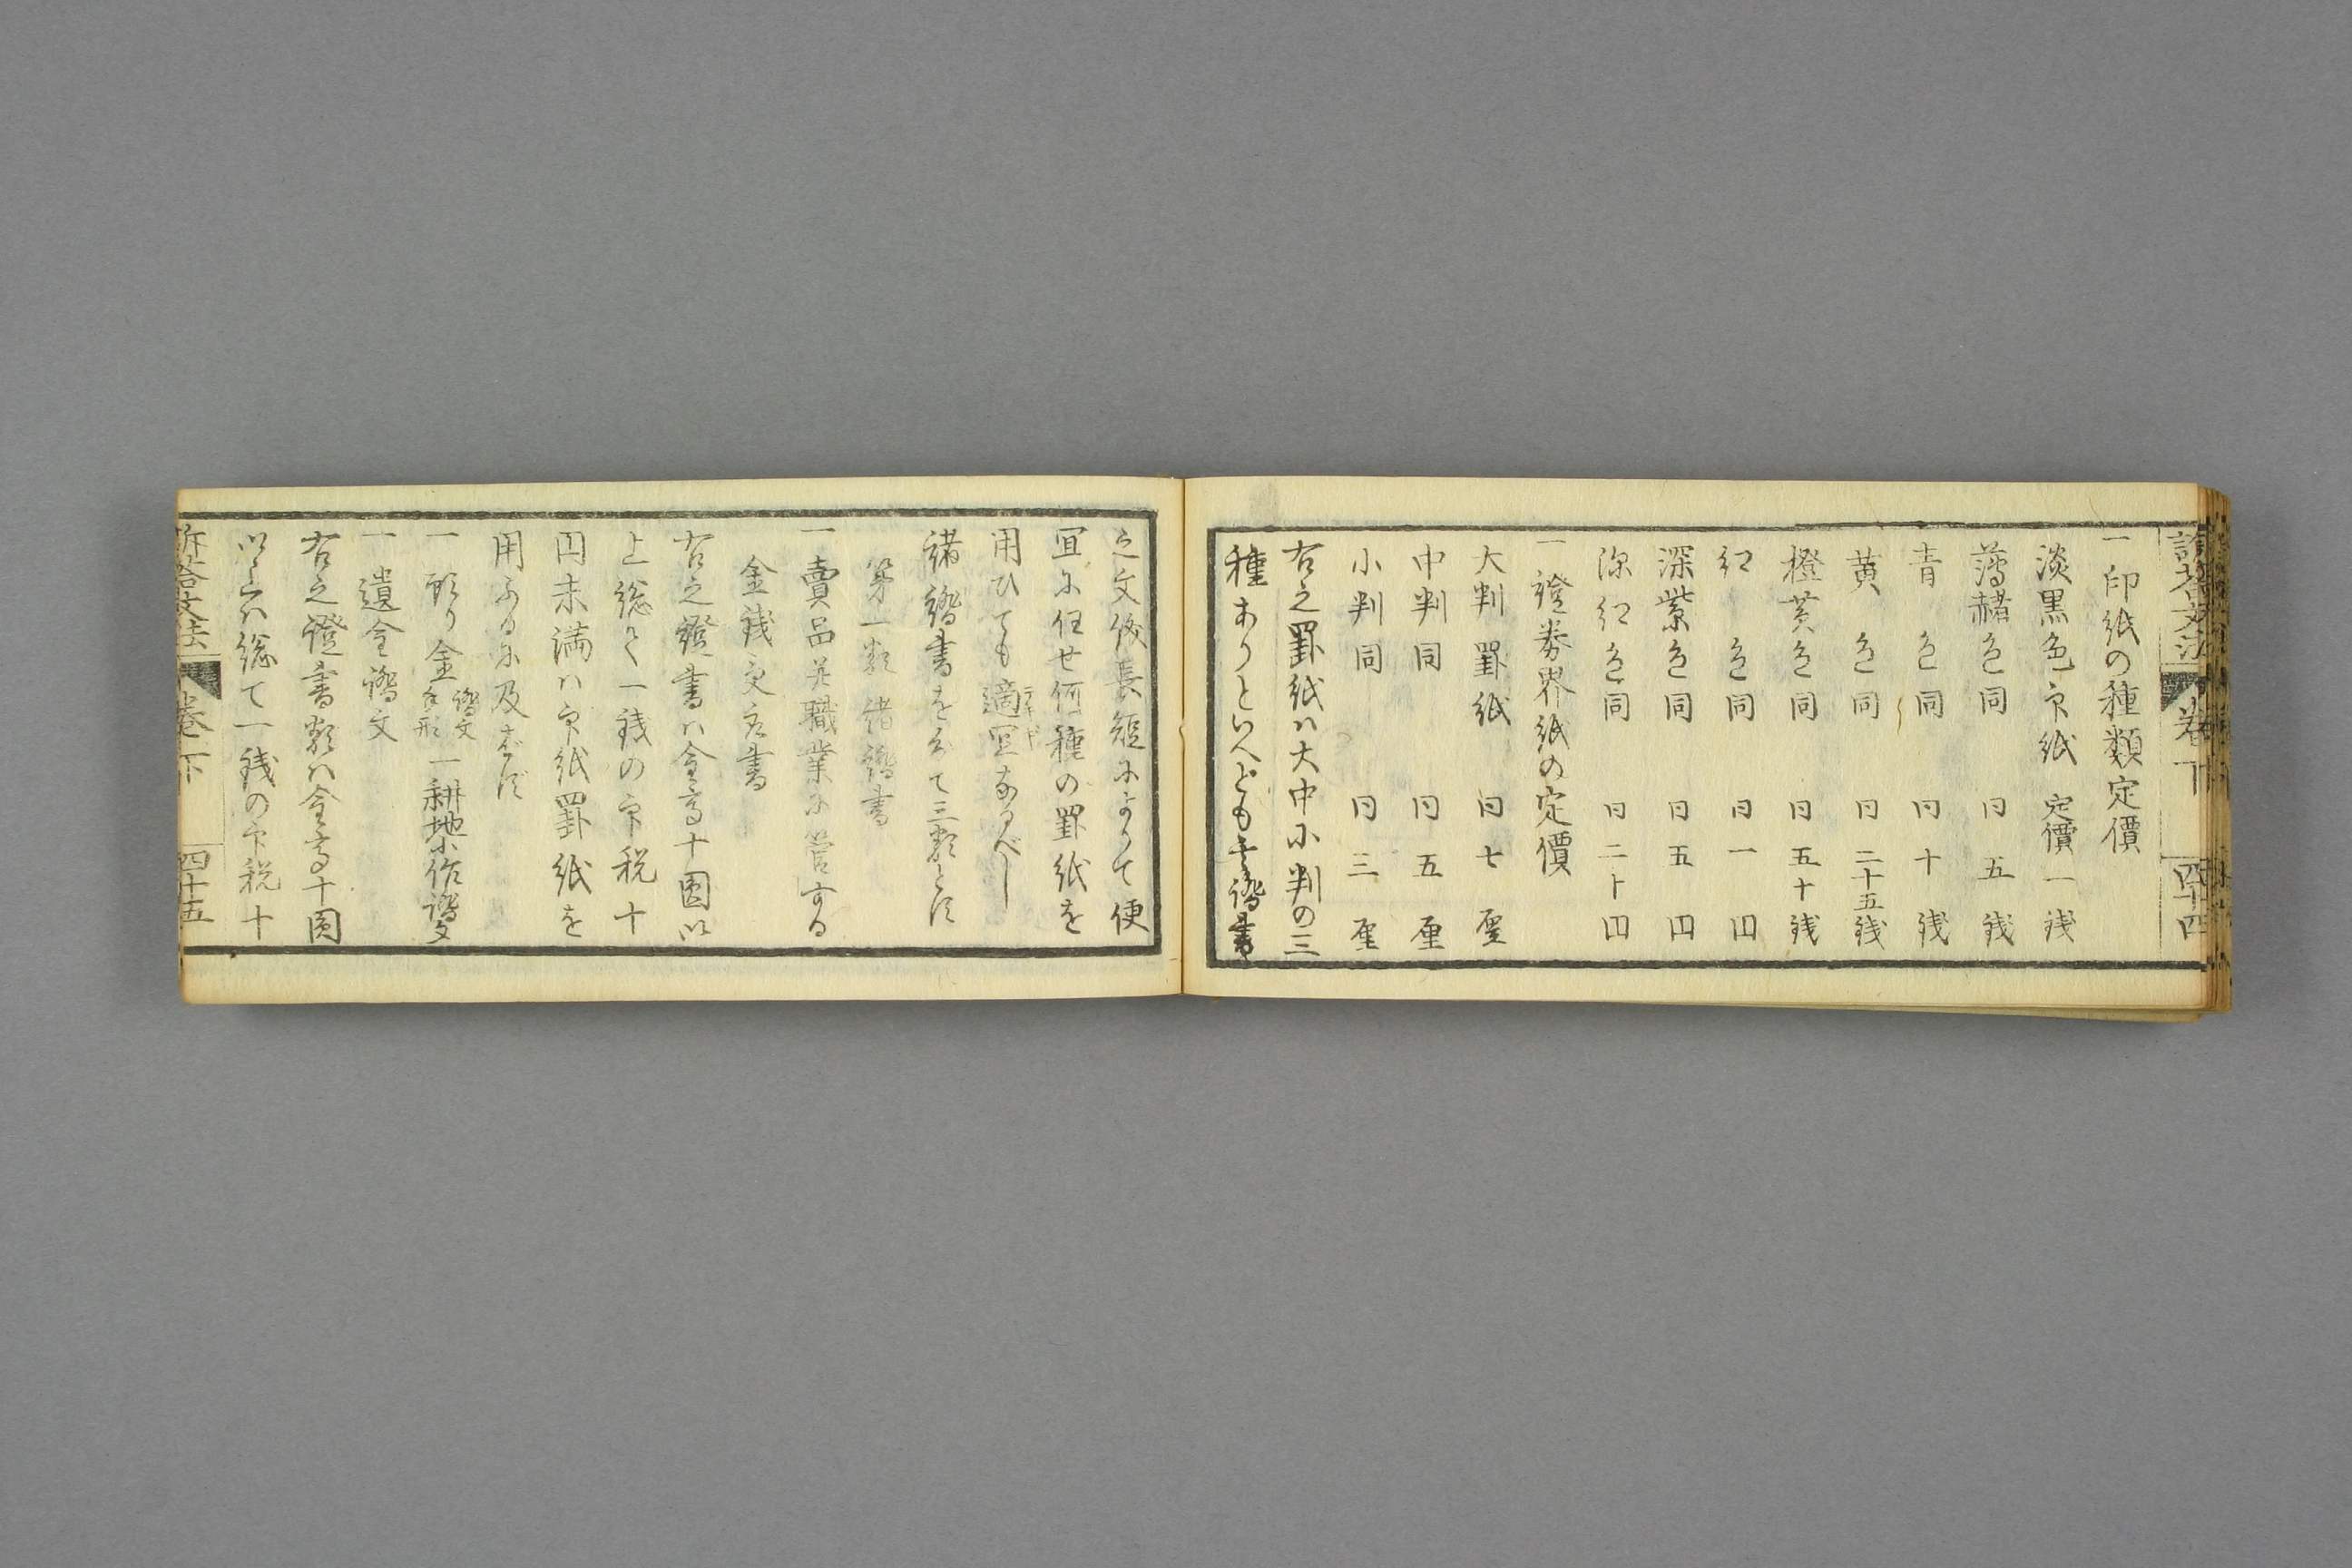 訴答文法 卷下 四十四
一印紙の種類定價
淡黒色印紙 定價一銭
薄赭色同 同五銭
青色同 同十銭
黄色同 同二十五銭
橙黄色同 同五十銭
紅色同 同一円
深紫色同 同五円
深紅色同 同二十円
一證券界紙の定價
大判罫紙 同七厘
中判同 同五厘
小判同 同三厘
右之罫紙ハ大中小判の三
種ありといへども其證書
之文段長短によりて便
宜に任せ何種の罫紙を
用ひても適宜なるべし
諸證書を分て三類とす
第一類諸證書
一賣品并職業に管する
金銭受取書
右之證書ハ金高十圓以
上総て一銭の印税十
円未満ハ印紙罫紙を
用ふるに及ばず
一預り金證文手形一耕地小作證文
一遺金證文
右之證書類ハ金高十圓
以上ハ総て一銭の印税十
訴答文法 卷下 四十五